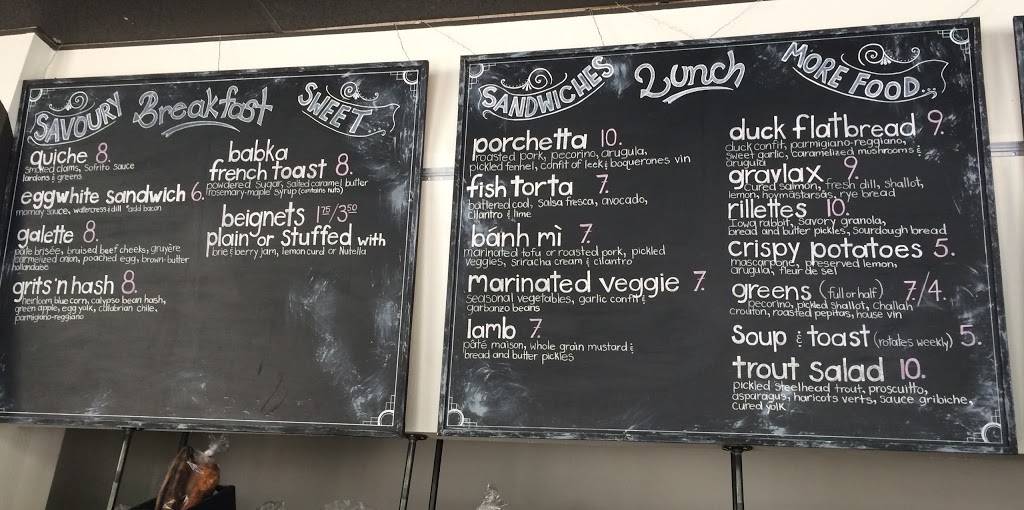 Breakfast
SAVOURY
quiche 8.
smoked clams, Sofrito sauce
lardons & greens
eggwhite sandwich 6.
mornay sauce, watercress & dill *add bacon
galette 8.
pate brisée, braised beef cheeks, gruyère
carmerlized onion, poached egg, brown-butter
hollandaise
grits 'n hash 8.
heirloom blue corn, calypso bean hash,
green apple, egg yolk, calabrian chile,
parmigiano-reggiano
SWEET...
babka
french toast 8.
powdered sugar, salted caramel, butter
rosemary-maple syrup (contains nuts)
beignets 1.75/3.50
plain or stuffed with
brie & berry jam, lemon curd or Nutella
Lunch
SANDWICHES
porchetta 10.
roasted pork, pecorino, arugula,
pickled fennel, confit of leek & boquerones vin
fish torta 7.
battered cod, salsa fresca, avocado,
cilantro & lime
bánh mì 7.
marinated tofu or roasted pork, pickled
veggies, sriracha cream & cilantro
marinated veggie 7.
seasonal vegetables, garlic confit &
garbanzo beans
lamb 7.
pâté maison, whole grain mustard &
bread and butter pickles
MORE FOOD...
duck flatbread 9.
duck confit, parmigiano-reggiano,
sweet garlic, caramelized mushrooms &
arugula
gravlax 9.
cured salmon, fresh dill, shallot,
lemon, hoymastarsås, rye bread
rillettes 10.
Iowa rabbit, savory granola,
bread and butter pickles, sourdough bread
crispy potatoes 5.
mascarpone, preserved lemon,
arugula, fleur de sel
greens (full or half) 7/4.
pecorino, pickled shallot, challah
crouton, roasted pepitas, house vin
soup & toast (rotates weekly) 5.
trout salad 10.
pickled steelhead trout, prosciutto,
asparagus, haricots verts, sauce gribiche,
cured yolk